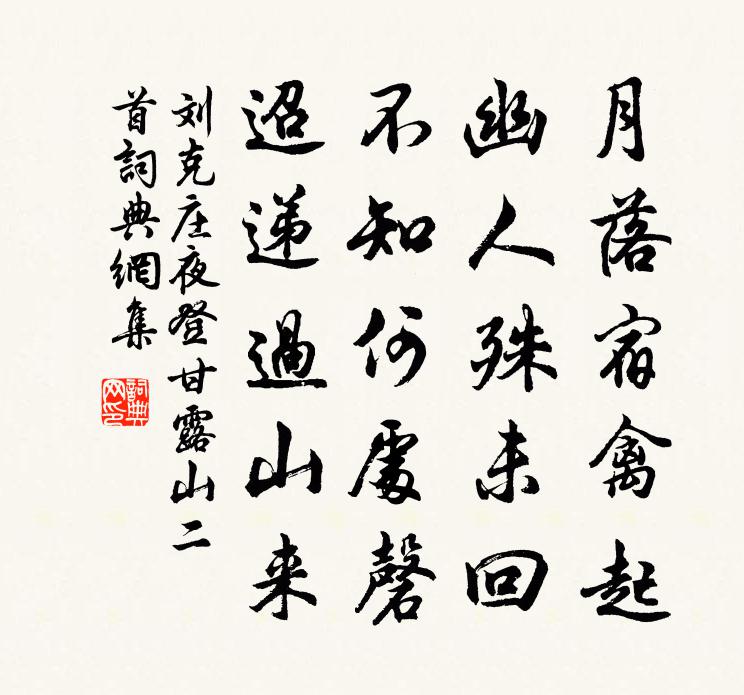 月落宿禽起
幽人殊未回
不知何處磬
迢递過山来
刘克庄夜登甘露山二
首詞典網集
詞典
网印